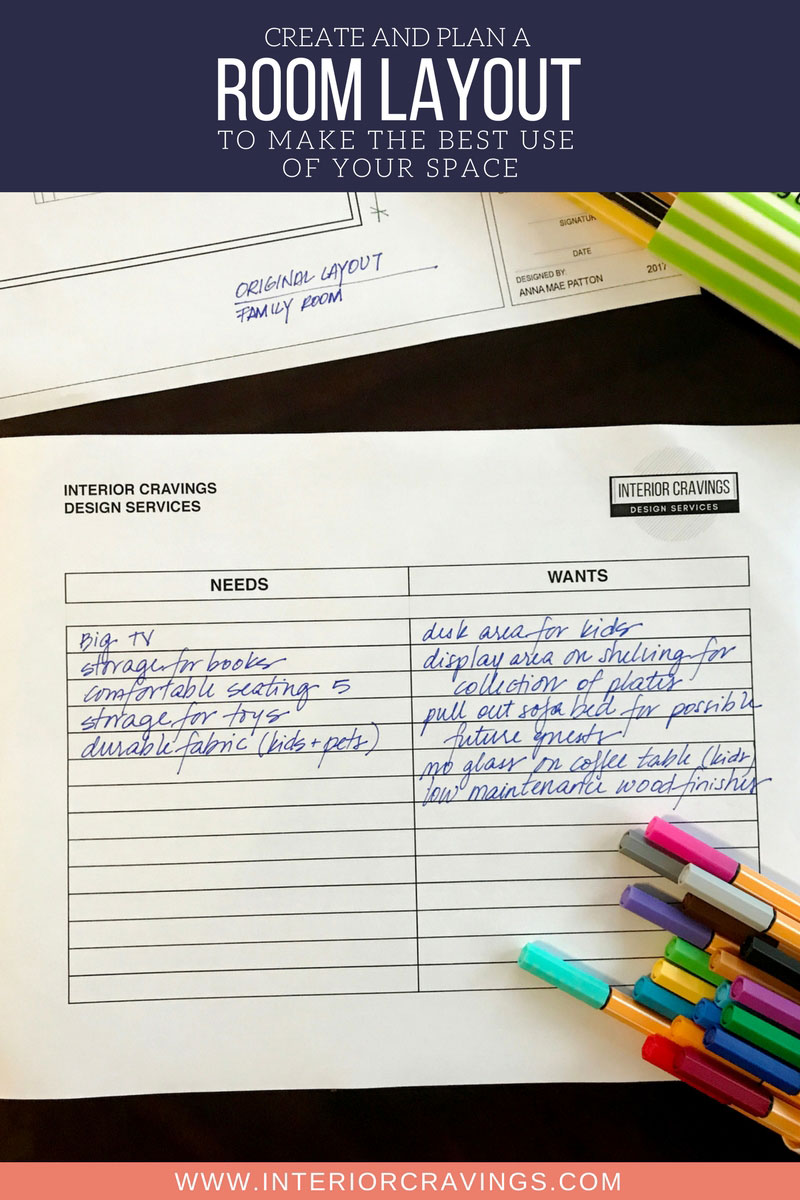 CREATE AND PLAN A
ROOM LAYOUT
TO MAKE THE BEST USE
OF YOUR SPACE
SIGNATUR
DATE
ORIGINAL LAYOUT
FAMILY ROOM
DESIGNED BY:
ANNA MAE PATTON
2017
INTERIOR CRAVINGS
DESIGN SERVICES
INTERIOR CRAVINGS
DESIGN SERVICES
NEEDS
Big TV
storage for books
comfortable seating 5
storage for toys
durable fabric (kids + pets)
WANTS
desk area for kids
display area on shelving for
collection of plates
pull out sofa bed for possible
future guests
no glass on coffee table (kids)
low maintenance wood finishes
WWW.INTERIORCRAVINGS.COM